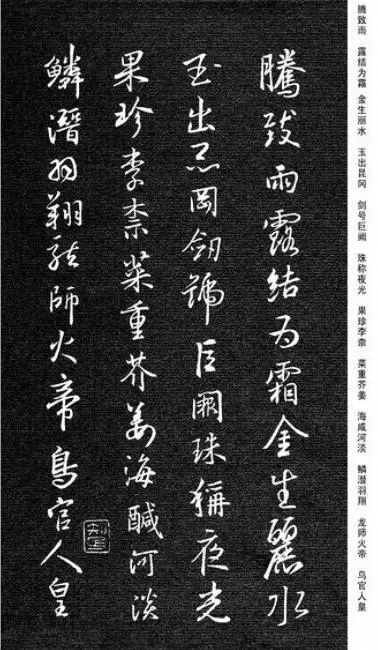 腾致雨 露结为霜 金生丽水 玉出昆冈 剑号巨阙 珠称夜光 果珍李柰 菜重芥姜 海咸河淡 鳞潜羽翔 龙师火帝 鸟官人皇
騰致雨露結为霜金生麗水
玉出崑岡劒號巨闕珠稱夜光
果珍李柰菜重芥姜海醎河淡
鱗潛羽翔龍師火帝鳥官人皇